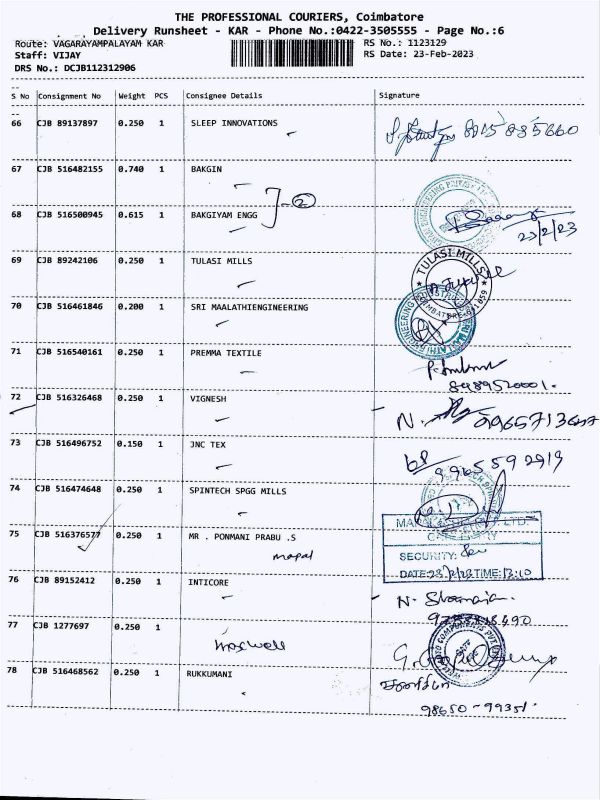 THE PROFESSIONAL COURIERS, Coimbatore
Delivery Runsheet - KAR - Phone No.:0422-3505555 - Page No.:6
Route: VAGARAYAMPALAYAM KAR RS No.: 1123129
Staff: VIJAY RS Date: 23-Feb-2023
DRS No.: DCJB112312906
S No Consignment No Weight PCS Consignee Details Signature
66 CJB 89137897 0.250 1 SLEEP INNOVATIONS
67 CJB 516482155 0.740 1 BAKGIN
68 CJB 516500945 0.615 1 BAKGIYAM ENGG
23/2/23
69 CJB 89242106 0.250 1 TULASI MILLS
TULASI MILLS
70 CJB 516461846 0.200 1 SRI MAALATHIENGINEERING
71 CJB 516540161 0.250 1 PREMMA TEXTILE
8489520001.
72 CJB 516326468 0.250 1 VIGNESH
73 CJB 516496752 0.150 1 JNC TEX
9965592919
74 CJB 516474648 0.250 1 SPINTECH SPGG MILLS
75 CJB 516376577 0.250 1 MR . PONMANI PRABU .S
mapal
SECURITY:
DATE:23/2/23 TIME:13:10
76 CJB 89152412 0.250 1 INTICORE
77 CJB 1277697 0.250 1
78 CJB 516468562 0.250 1 RUKKUMANI
98650-99351.